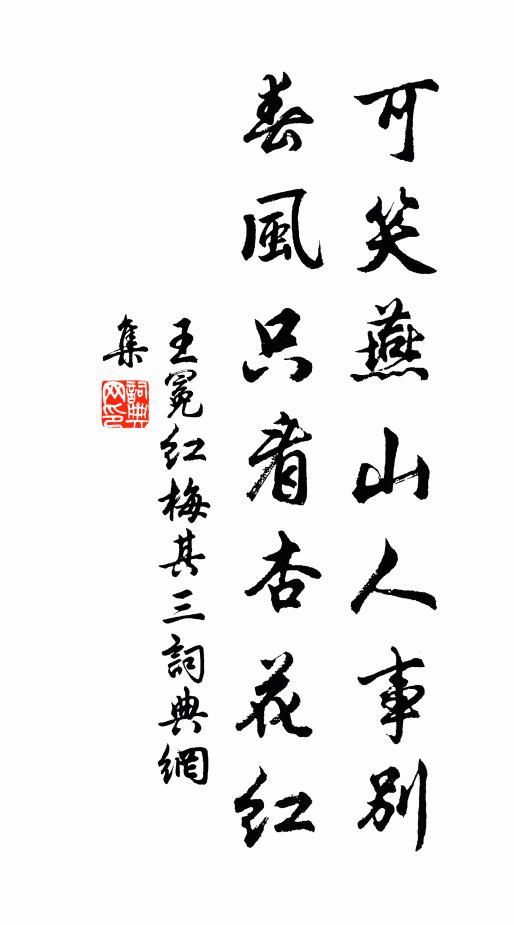 可笑燕山人事別
春風只看杏花紅
王冕紅梅其三詞典網
集
詞典網印